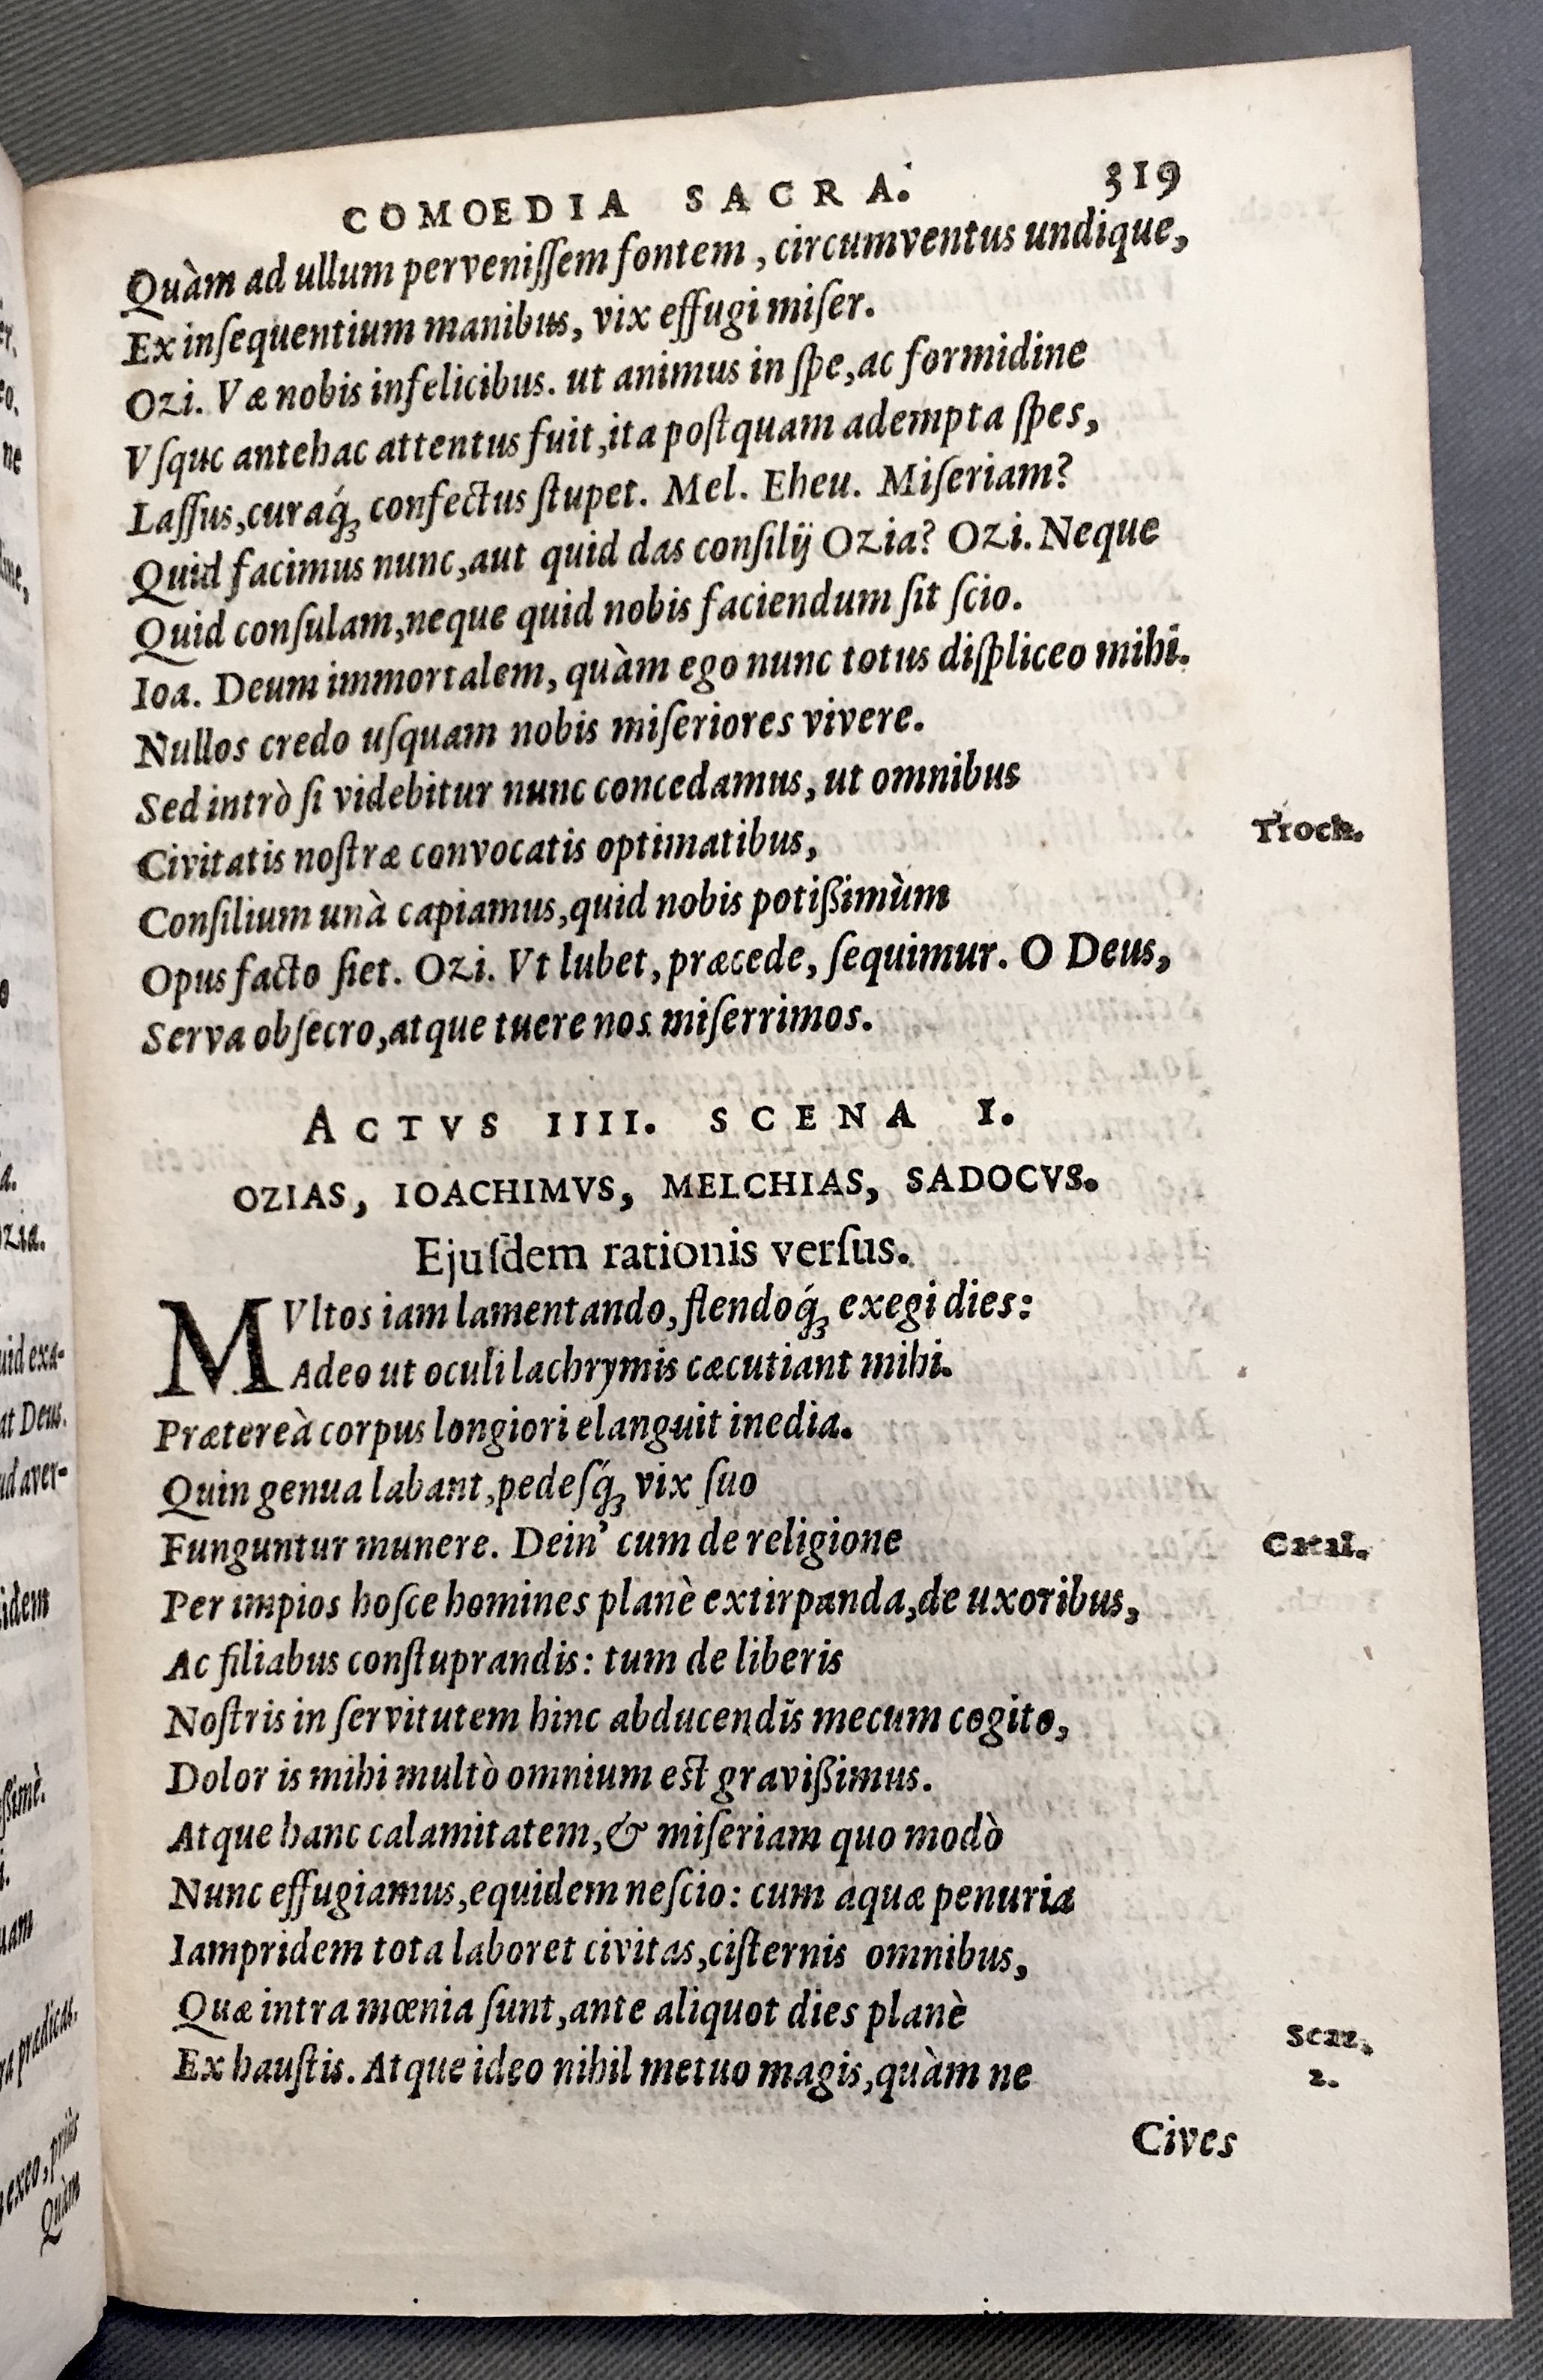 COMOEDIA SACRA. 319
Quàm ad ullum perveniſſem fontem, circumventus undique,
Ex inſequentium manibus, vix effugi miſer.
Ozi. Væ nobis infelicibus. ut animus in ſpe, ac formidine
Vſque antehac attentus fuit, ita poſtquam adempta ſpes,
Laſſus, curaq́ꝫ confectus ſtupet. Mel. Eheu. Miſeriam?
Quid facimus nunc, aut quid das conſilij Ozia? Ozi. Neque
Quid conſulam, neque quid nobis faciendum ſit ſcio.
Ioa. Deum immortalem, quàm ego nunc totus diſpliceo mihi.
Nullos credo uſquam nobis miſeriores vivere.
Sed intrò ſi videbitur nunc concedamus, ut omnibus
Troch.
Civitatis noſtræ convocatis optimatibus,
Conſilium unà capiamus, quid nobis potißimùm
Opus facto ſiet. Ozi. Vt lubet, præcede, ſequimur. O Deus,
Serva obſecro, atque tuere nos miſerrimos.
ACTVS IIII. SCENA I.
OZIAS, IOACHIMVS, MELCHIAS, SADOCVS.
Ejuſdem rationis verſus.
MVltos iam lamentando, flendoq́ꝫ exegi dies:
Adeo ut oculi lachrymis cæcutiant mihi.
Prætereà corpus longiori elanguit inedia.
Quin genua labant, pedeſq́ꝫ vix ſuo
Funguntur munere. Dein' cum de religione
Catal.
Per impios hoſce homines planè extirpanda, de uxoribus,
Ac filiabus conſtuprandis: tum de liberis
Noſtris in ſervitutem hinc abducendis mecum cogito,
Dolor is mihi multò omnium eſt gravißimus.
Atque hanc calamitatem, & miſeriam quo modò
Nunc effugiamus, equidem neſcio: cum aquæ penuria
Iampridem tota laboret civitas, ciſternis omnibus,
Quæ intra mœnia ſunt, ante aliquot dies planè
Scaz.
Exhauſtis. Atque ideo nihil metuo magis, quàm ne
2.
Cives